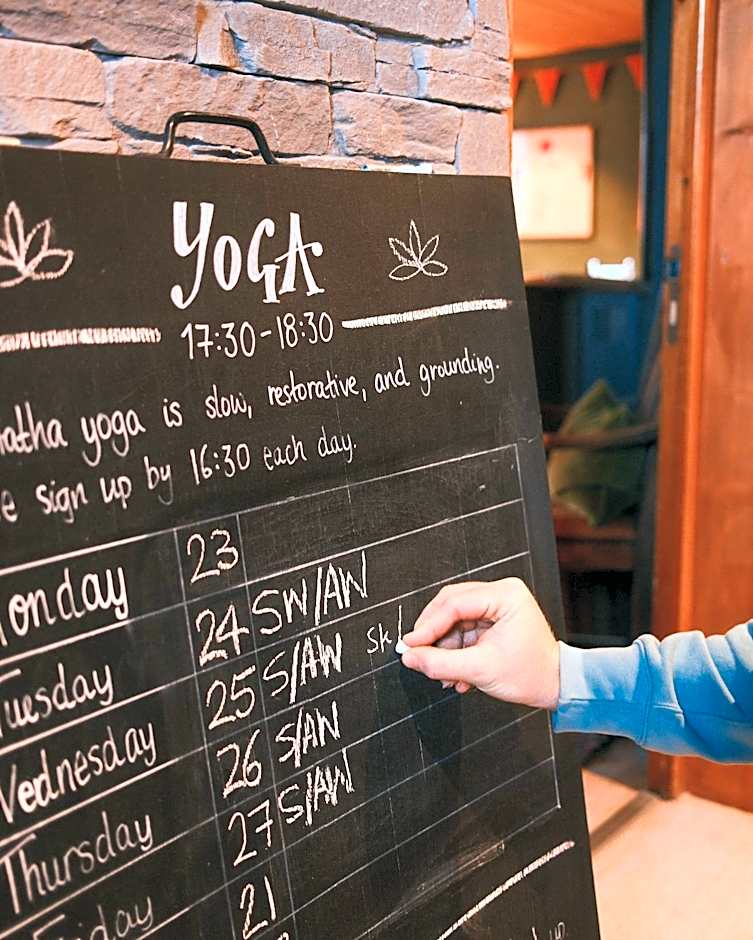 YOGA
17:30-18:30
atha yoga is slow, restorative, and grounding.
e sign up by 16:30 each day.
Monday 23
Tuesday 24 SW/AW
Wednesday 25 S/AW Sk/
Thursday 26 S/AN
Friday 27 S/AW
21
up